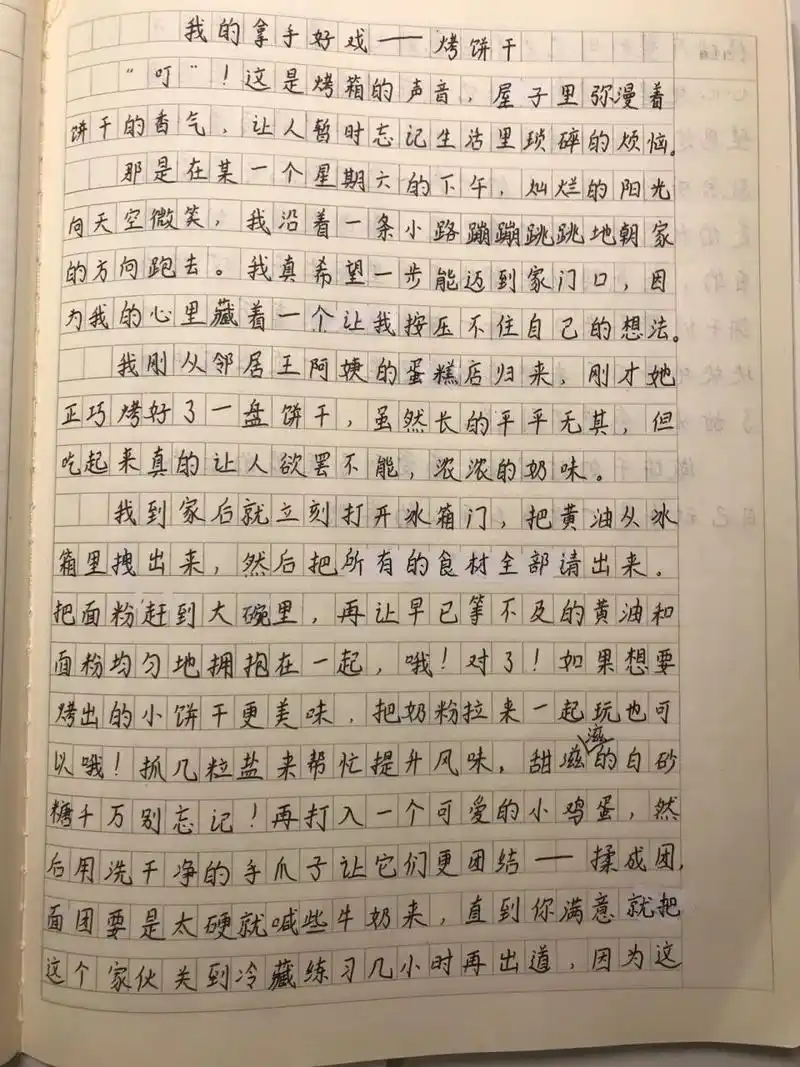 我的拿手好戏——烤饼干
“叮”！这是烤箱的声音，屋子里弥漫着
饼干的香气，让人暂时忘记生活里琐碎的烦恼。
那是在某一个星期六的下午，灿烂的阳光
向天空微笑，我沿着一条小路蹦蹦跳跳地朝家
的方向跑去。我真希望一步能迈到家门口，因
为我的心里藏着一个让我按压不住自己的想法。
我刚从邻居王阿姨的蛋糕店归来，刚才她
正巧烤好了一盘饼干，虽然长的平平无其，但
吃起来真的让人欲罢不能，浓浓的奶味。
我到家后就立刻打开冰箱门，把黄油从冰
箱里拽出来，然后把所有的食材全部请出来。
把面粉赶到大碗里，再让早已等不及的黄油和
面粉均匀地拥抱在一起，哦！对了！如果想要
烤出的小饼干更美味，把奶粉拉来一起玩也可
以哦！抓几粒盐来帮忙提升风味，甜滋滋的白砂
糖千万别忘记！再打入一个可爱的小鸡蛋，然
后用洗干净的手爪子让它们更团结——揉成团，
面团要是太硬就喊些牛奶来，直到你满意就把
这个家伙关到冷藏练习几小时再出道，因为这